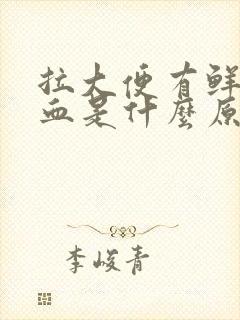 拉大便有鲜
血是什麼原
李峻青